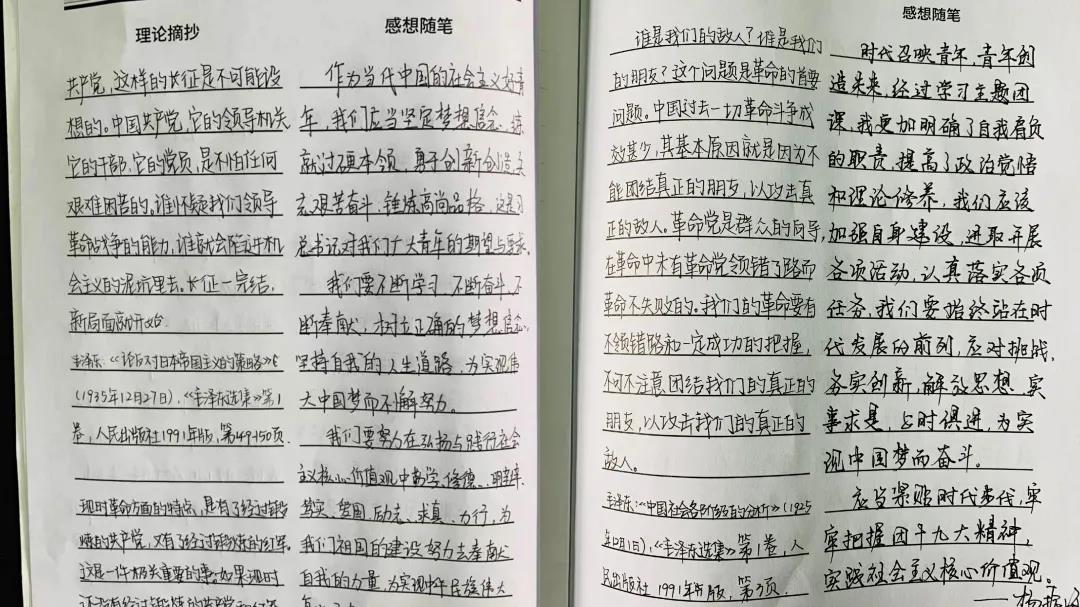 理论摘抄
共产党，这样的长征是不可能设
想的。中国共产党，它的领导机关
它的干部，它的党员，是不怕任何
艰难困苦的。谁怀疑我们领导
革命战争的能力，谁就会陷进机
会主义的泥坑里去。长征一完结，
新局面就开始
毛泽东：《论反对日本帝国主义的策略》
（1935年12月27日），《毛泽东选集》第1
卷，人民出版社1991年版，第149-150页.
现时革命方面的特点，是有了经过锻
炼的共产党，又有了经过锻炼的红军。
这是一件极关重要的事。如果现时
感想随笔
作为当代中国的社会主义好青
年，我们应当坚定梦想信念、练
就过硬本领、勇于创新创造、矢
志艰苦奋斗、锤炼高尚品格，这是习
总书记对我们广大青年的期望与要求
我们要不断学习、不断奋斗、不
断奉献，树立正确的梦想信念、
坚持自我的人生道路，为实现伟
大中国梦而不懈努力。
我们要努力在弘扬与践行社会
主义核心价值观中勤学、修德、明辨、
笃实、爱国、励志、求真、力行，为
我们祖国的建设努力去奉献
自我的力量，为实现中华民族伟大
谁是我们的敌人？谁是我们
的朋友？这个问题是革命的首要
问题。中国过去一切革命斗争成
效甚少，其基本原因就是因为不
能团结真正的朋友，以攻击真
正的敌人。革命党是群众的向导，
在革命中未有革命党领错了路而
革命不失败的。我们的革命要有
不领错路和一定成功的把握，
不可不注意团结我们的真正的
朋友，以攻击我们的真正的
敌人。
毛泽东：《中国社会各阶级的分析》（1925
年12月1日），《毛泽东选集》第1卷，人
民出版社1991年版，第3页.
感想随笔
时代召唤青年，青年创
造未来，经过学习主题团
课，我更加明确了自我肩负
的职责，提高了政治觉悟
和理论修养，我们应该
加强自身建设，进取开展
各项活动，认真落实各项
任务，我们要始终站在时
代发展的前列，应对挑战，
务实创新，解放思想、实
事求是，与时俱进，为实
现中国梦而奋斗。
应当紧贴时代步伐，牢
牢把握团十九大精神，
实践社会主义核心价值观。